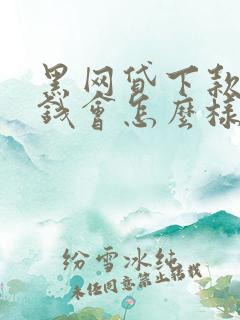 黑网贷下款
钱會怎麼樣
纷雪冰纯
未经同意禁止转载